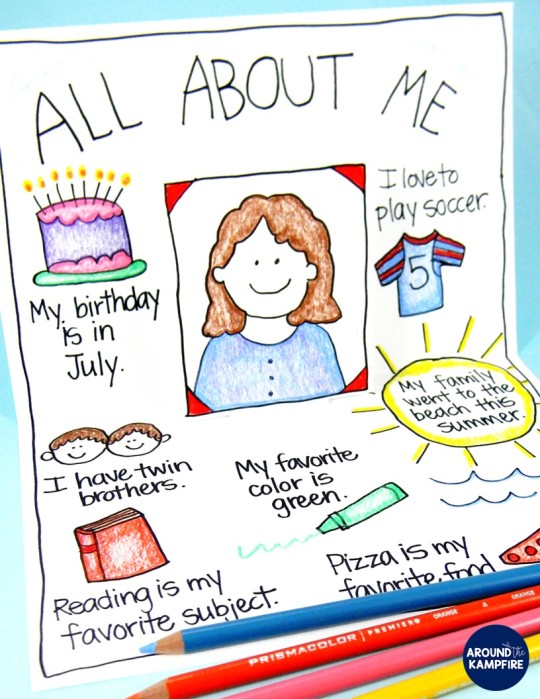 ALL ABOUT ME
I love to
play soccer.
5
My birthday
is in
July.
My family
went to the
beach this
summer.
I have twin
brothers.
My favorite
color is
green.
Reading is my
favorite subject.
Pizza is my
favorite food
PRISMACOLOR | PREMIER
ORANGE
ORANGE
AROUND
the
KAMPFIRE